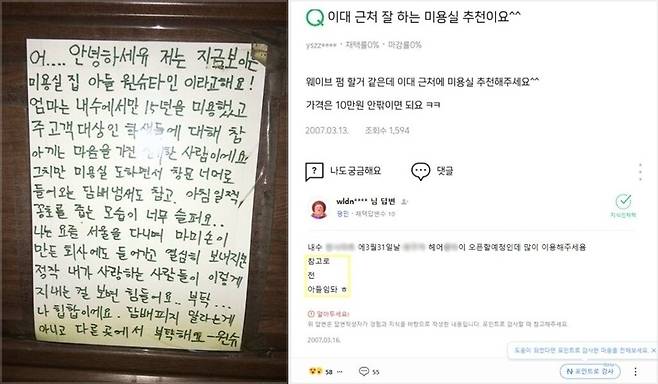 어.... 안녕하세유 저는 지금보이는
미용실 집 아들 원슈타인 이라고해요!
엄마는 내수에서만 15년을 미용했고
주고객 대상인 학생들에 대해 참
아끼는 마음을 가진 사람이에요
그치만 미용실 도하면서 창문 너머로
들어오는 담배냄새도 참고, 아침 일찍
꽁초를 줍는 모습이 너무 슬퍼요..
나는 요즘 서울을 다니며 마미손이
만든 회사에도 들어가고 열심히 보내지만
정작 내가 사랑하는 사람들이 이렇게
지내는걸 보면 힘들어요.. 부탁...
나 힙합이에요. 담배피지 말라는게
아니고 다른곳에서 부탁해요 -원슈
이대 근처 잘 하는 미용실 추천이요^^
yszz**** · 채택률0% · 마감률0%
웨이브 펌 할거 같은데 이대 근처에 미용실 추천해주세요^^
가격은 10만원 안팎이면 되요 ㅋㅋ
2007.03.13. 조회수 1,594
나도궁금해요
댓글
wldn**** 님 답변
평민 · 채택답변수 10
지식인채택
내수 에3월31일날 헤어 이 오픈할예정인데 많이 이용해주세용
참고로
전
아들임돠 ㅎ
알아두세요!
위 답변은 답변작성자가 경험과 지식을 바탕으로 작성한 내용입니다. 포인트로 감사할 때 참고해주세요.
2007.03.16.
도움이 되었다면 포인트로 감사한 마음을 전해보세요
58
55
N 포인트로 감사